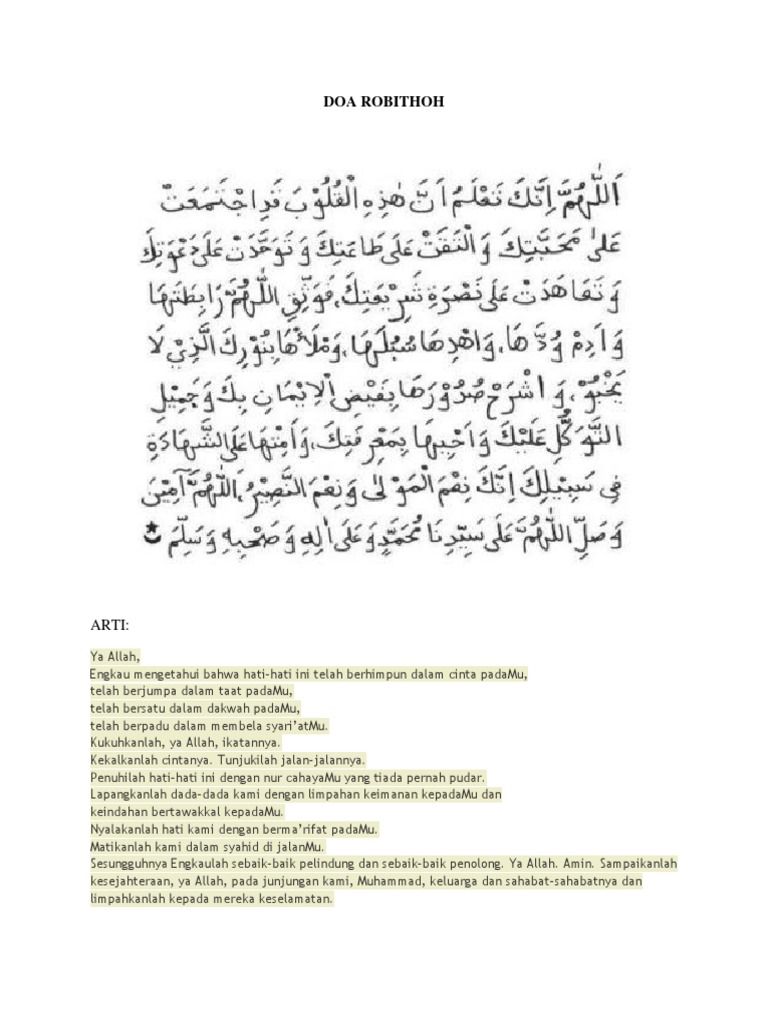 DOA ROBITHOH
اَللّٰهُمَّ اِنَّكَ تَعْلَمُ اَنَّ هٰذِهِ الْقُلُوْبَ قَدِ اجْتَمَعَتْ
عَلىٰ مَحَبَّتِكَ وَالْتَقَتْ عَلَى طَاعَتِكَ وَتَوَحَّدَتْ عَلَى دَعْوَتِكَ
وَتَعَاهَدَتْ عَلَى نَصْرَةِ شَرِيْعَتِكَ، فَوَثِّقِ اللّٰهُمَّ رَابِطَتَهَا
وَاَدِمْ وُدَّهَا، وَاهْدِهَا سُبُلَهَا، وَمْلَأْهَا بِنُوْرِكَ الَّذِيْ لَا
يَخْبُوْ، وَاشْرَحْ صُدُوْرَهَا بِفَيْضِ الْاِيْمَانِ بِكَ وَجَمِيْلِ
التَّوَكُّلِ عَلَيْكَ وَاَحْيِهَا بِمَعْرِفَتِكَ، وَاَمِتْهَا عَلَى الشَّهَادَةِ
فِى سَبِيْلِكَ اِنَّكَ نِعْمَ الْمَوْلٰى وَنِعْمَ النَّصِيْرُ، اَللّٰهُمَّ آمِيْنَ
وَصَلِّ اللّٰهُمَّ عَلَى سَيِّدِنَا مُحَمَّدٍ وَعَلَى اٰلِهِ وَصَحْبِهِ وَسَلِّمْ
ARTI:
Ya Allah,
Engkau mengetahui bahwa hati-hati ini telah berhimpun dalam cinta padaMu,
telah berjumpa dalam taat padaMu,
telah bersatu dalam dakwah padaMu,
telah berpadu dalam membela syari’atMu.
Kukuhkanlah, ya Allah, ikatannya.
Kekalkanlah cintanya. Tunjukilah jalan-jalannya.
Penuhilah hati-hati ini dengan nur cahayaMu yang tiada pernah pudar.
Lapangkanlah dada-dada kami dengan limpahan keimanan kepadaMu dan
keindahan bertawakkal kepadaMu.
Nyalakanlah hati kami dengan berma’rifat padaMu.
Matikanlah kami dalam syahid di jalanMu.
Sesungguhnya Engkaulah sebaik-baik pelindung dan sebaik-baik penolong. Ya Allah. Amin. Sampaikanlah
kesejahteraan, ya Allah, pada junjungan kami, Muhammad, keluarga dan sahabat-sahabatnya dan
limpahkanlah kepada mereka keselamatan.